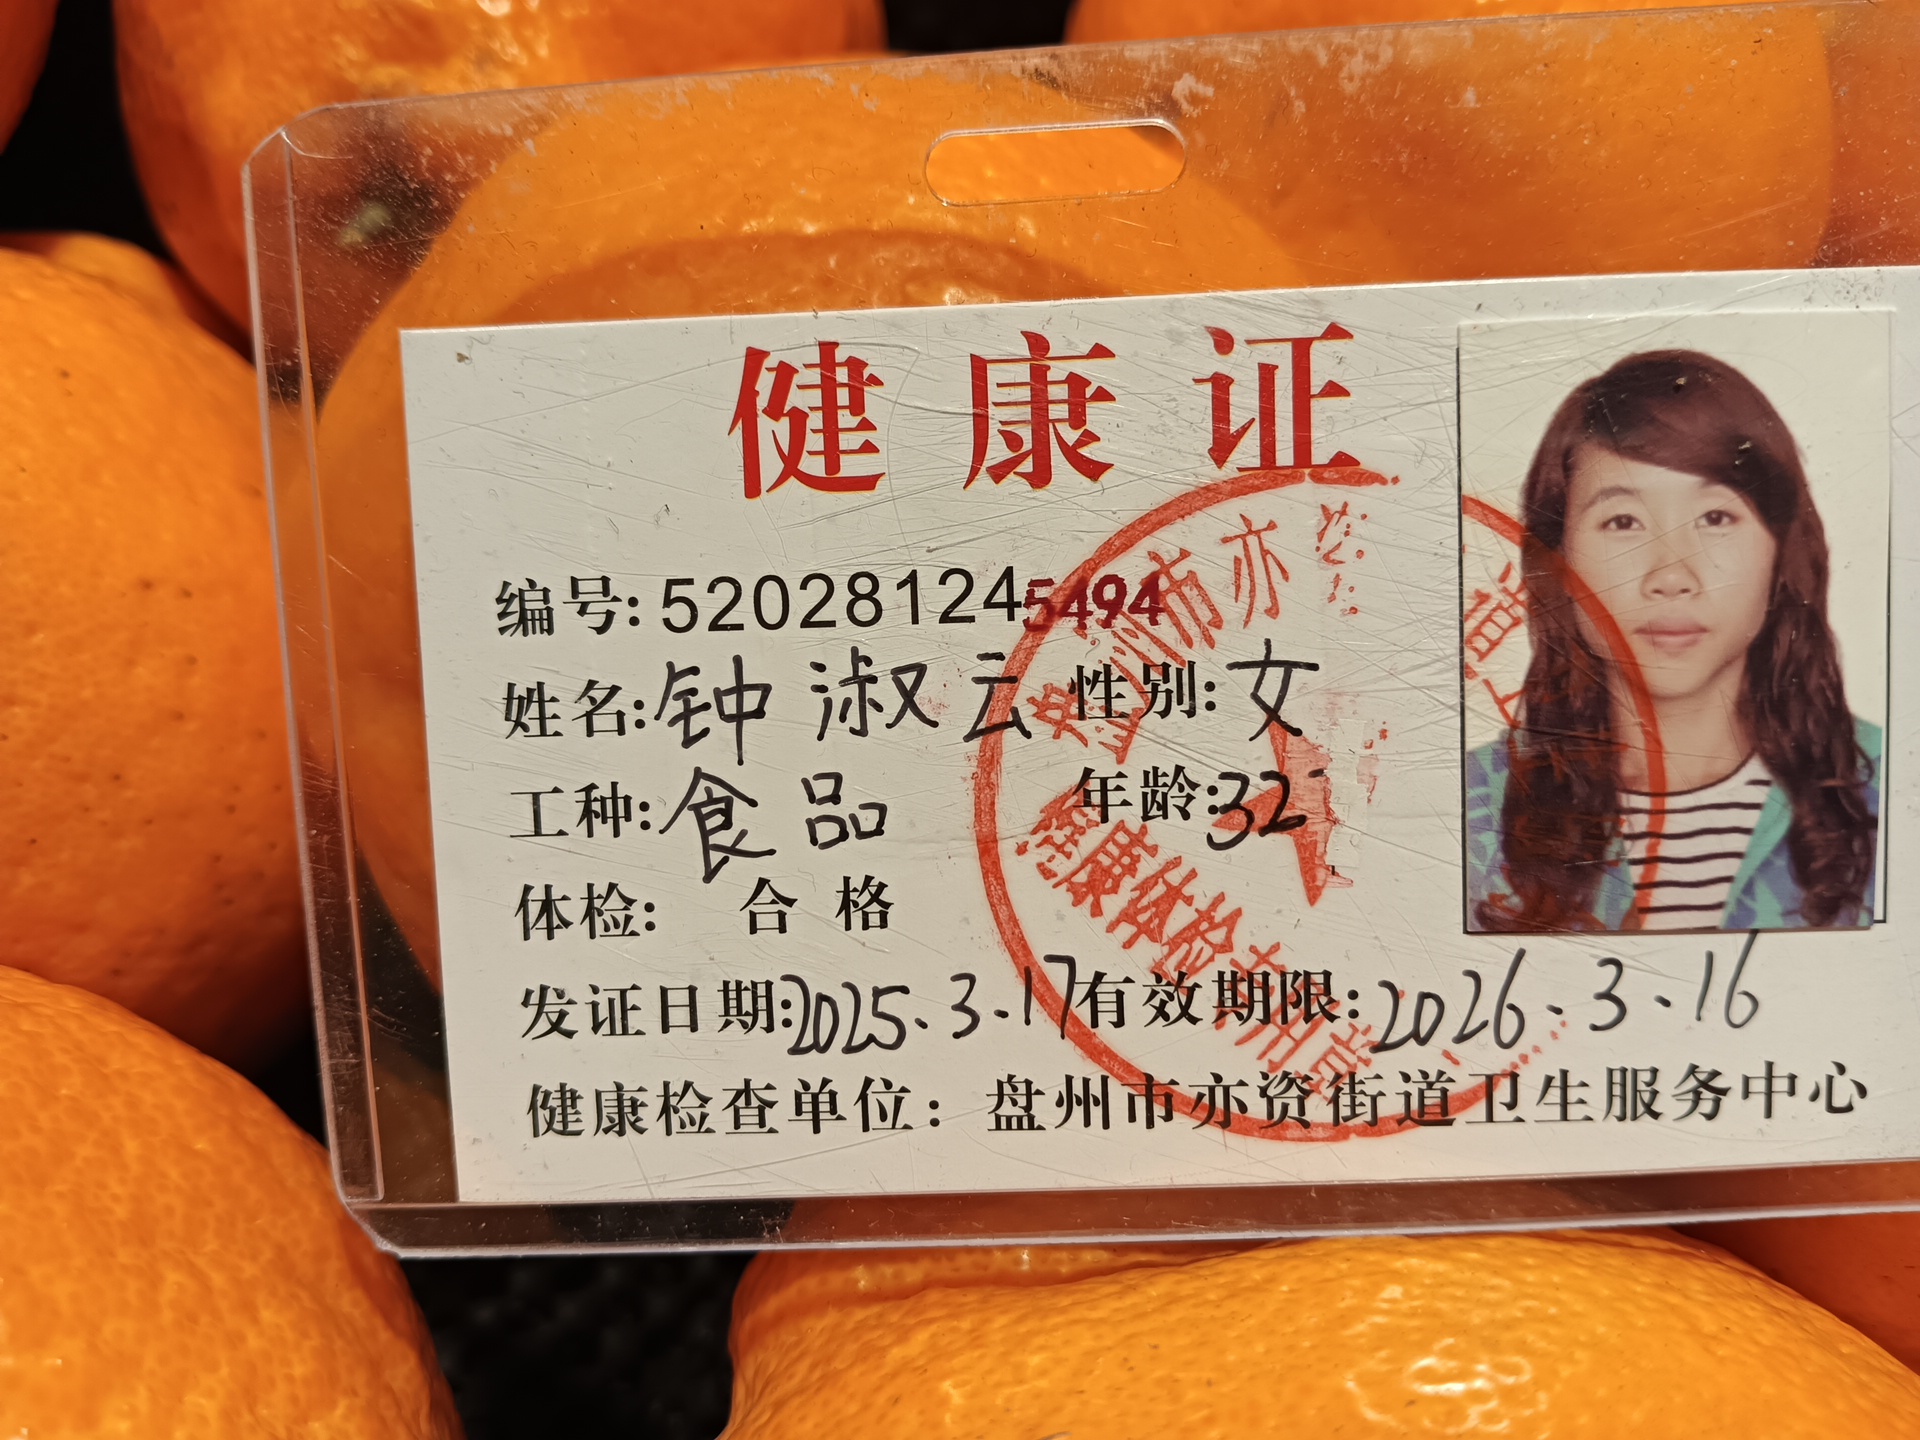 健康证
编号:5202812455494
姓名:钟淑云 性别:女
工种:食品 年龄:32
体检: 合格
发证日期:2025.3.17 有效期限:2026.3.16
健康检查单位: 盘州市亦资街道卫生服务中心
盘州市亦资
健康体检专用章